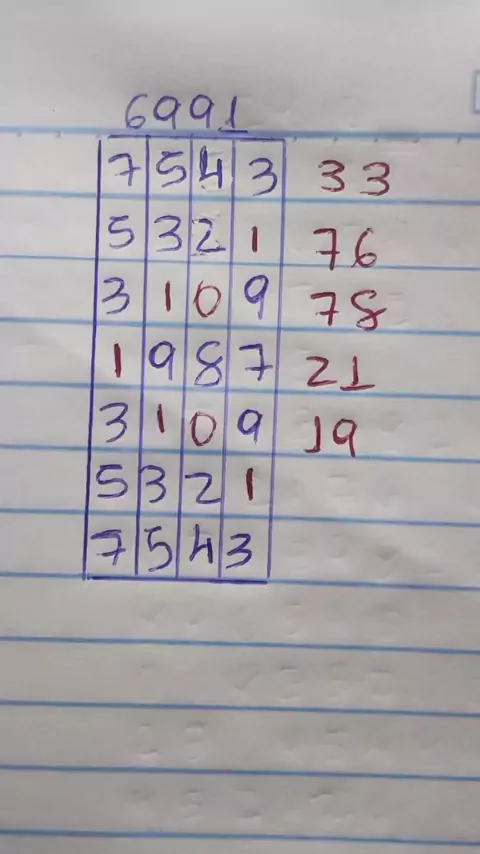 6991
7 5 4 3 33
5 3 2 1 76
3 1 0 9 78
1 9 8 7 21
3 1 0 9 19
5 3 2 1
7 5 4 3